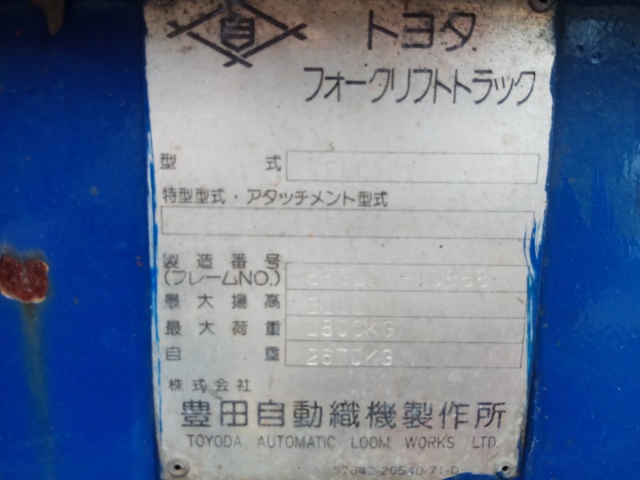 自
トヨタ
フォークリフトトラック
型式
特型型式・アタッチメント型式
製造番号
(フレームNO.)
最大揚高
最大荷重 1500KG
自重 2670KG
株式会社
豊田自動織機製作所
TOYODA AUTOMATIC LOOM WORKS LTD.
57840-20540-71-D